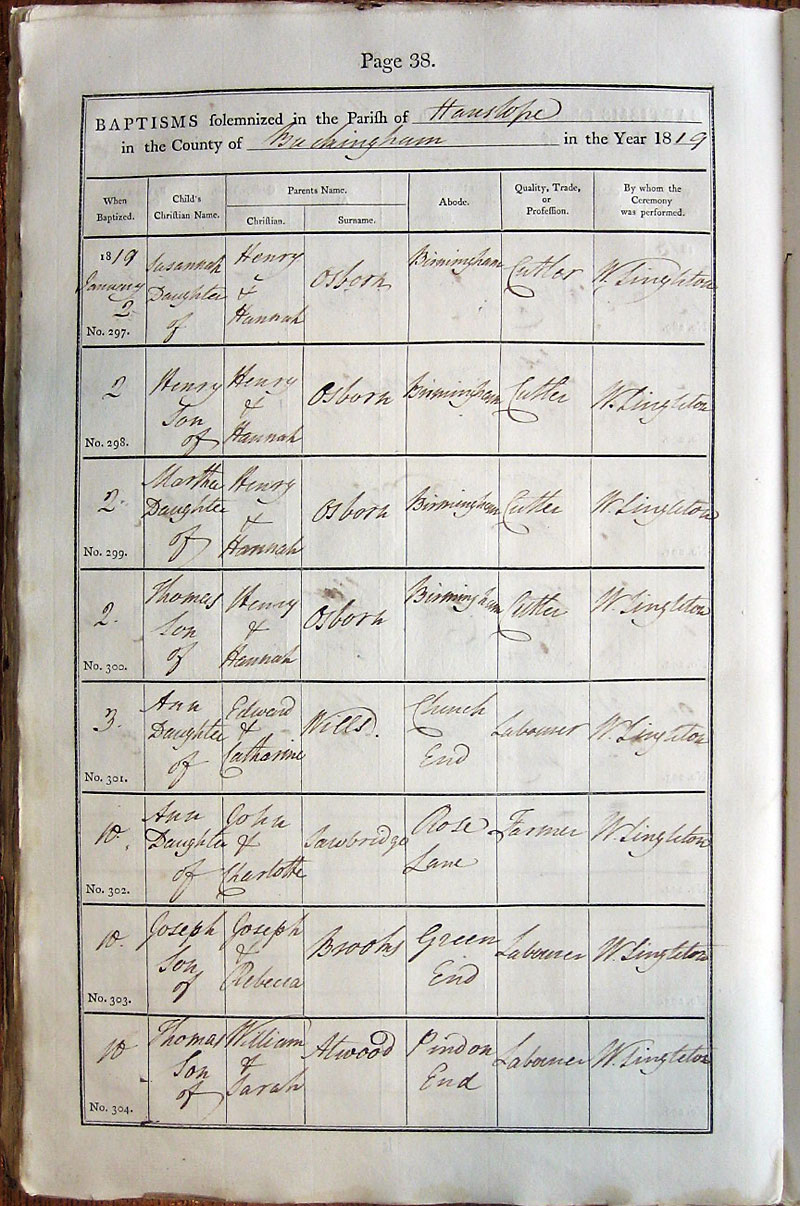 Page 38.
BAPTISMS solemnized in the Parish of Hanslope
in the County of Buckingham in the Year 1819
When Baptized.
Child's Christian Name.
Parents Name.
Christian.
Surname.
Abode.
Quality, Trade, or Profession.
By whom the Ceremony was performed.
1819 January 2 No. 297.
Susannah Daughter of
Henry & Hannah
Osborn
Birmingham
Cutler
W. Singleton
2 No. 298.
Henry Son of
Henry & Hannah
Osborn
Birmingham
Cutler
W. Singleton
2. No. 299.
Martha Daughter of
Henry & Hannah
Osborn
Birmingham
Cutler
W. Singleton
2. No. 300.
Thomas Son of
Henry & Hannah
Osborn
Birmingham
Cutler
W. Singleton
3. No. 301.
Ann Daughter of
Edward & Catharine
Wills.
Church End
Labourer
W. Singleton
10. No. 302.
Ann Daughter of
John & Charlotte
Sawbridge
Rose Lane
Farmer
W. Singleton
10. No. 303.
Joseph Son of
Joseph & Rebecca
Brooks
Green End
Labourer
W. Singleton
10 No. 304.
Thomas Son of
William & Sarah
Atwood
Pindon End
Labourer
W. Singleton